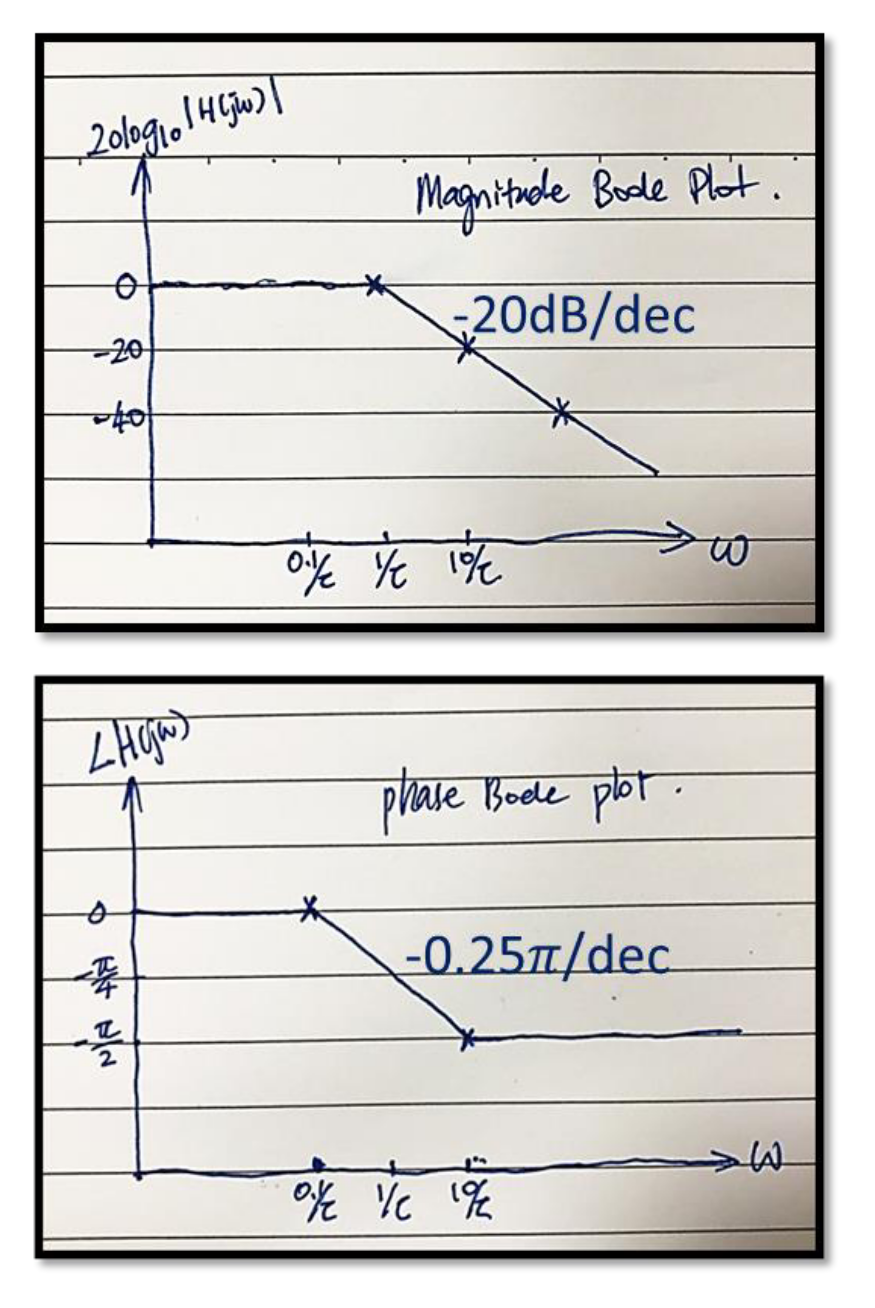 20log₁₀|H(jω)|
Magnitude Bode Plot.
0
-20dB/dec
-20
-40
0.1/τ 1/τ 10/τ ω
∠H(jω)
phase Bode plot.
0
-0.25π/dec
-π/4
-π/2
0.1/τ 1/τ 10/τ ω